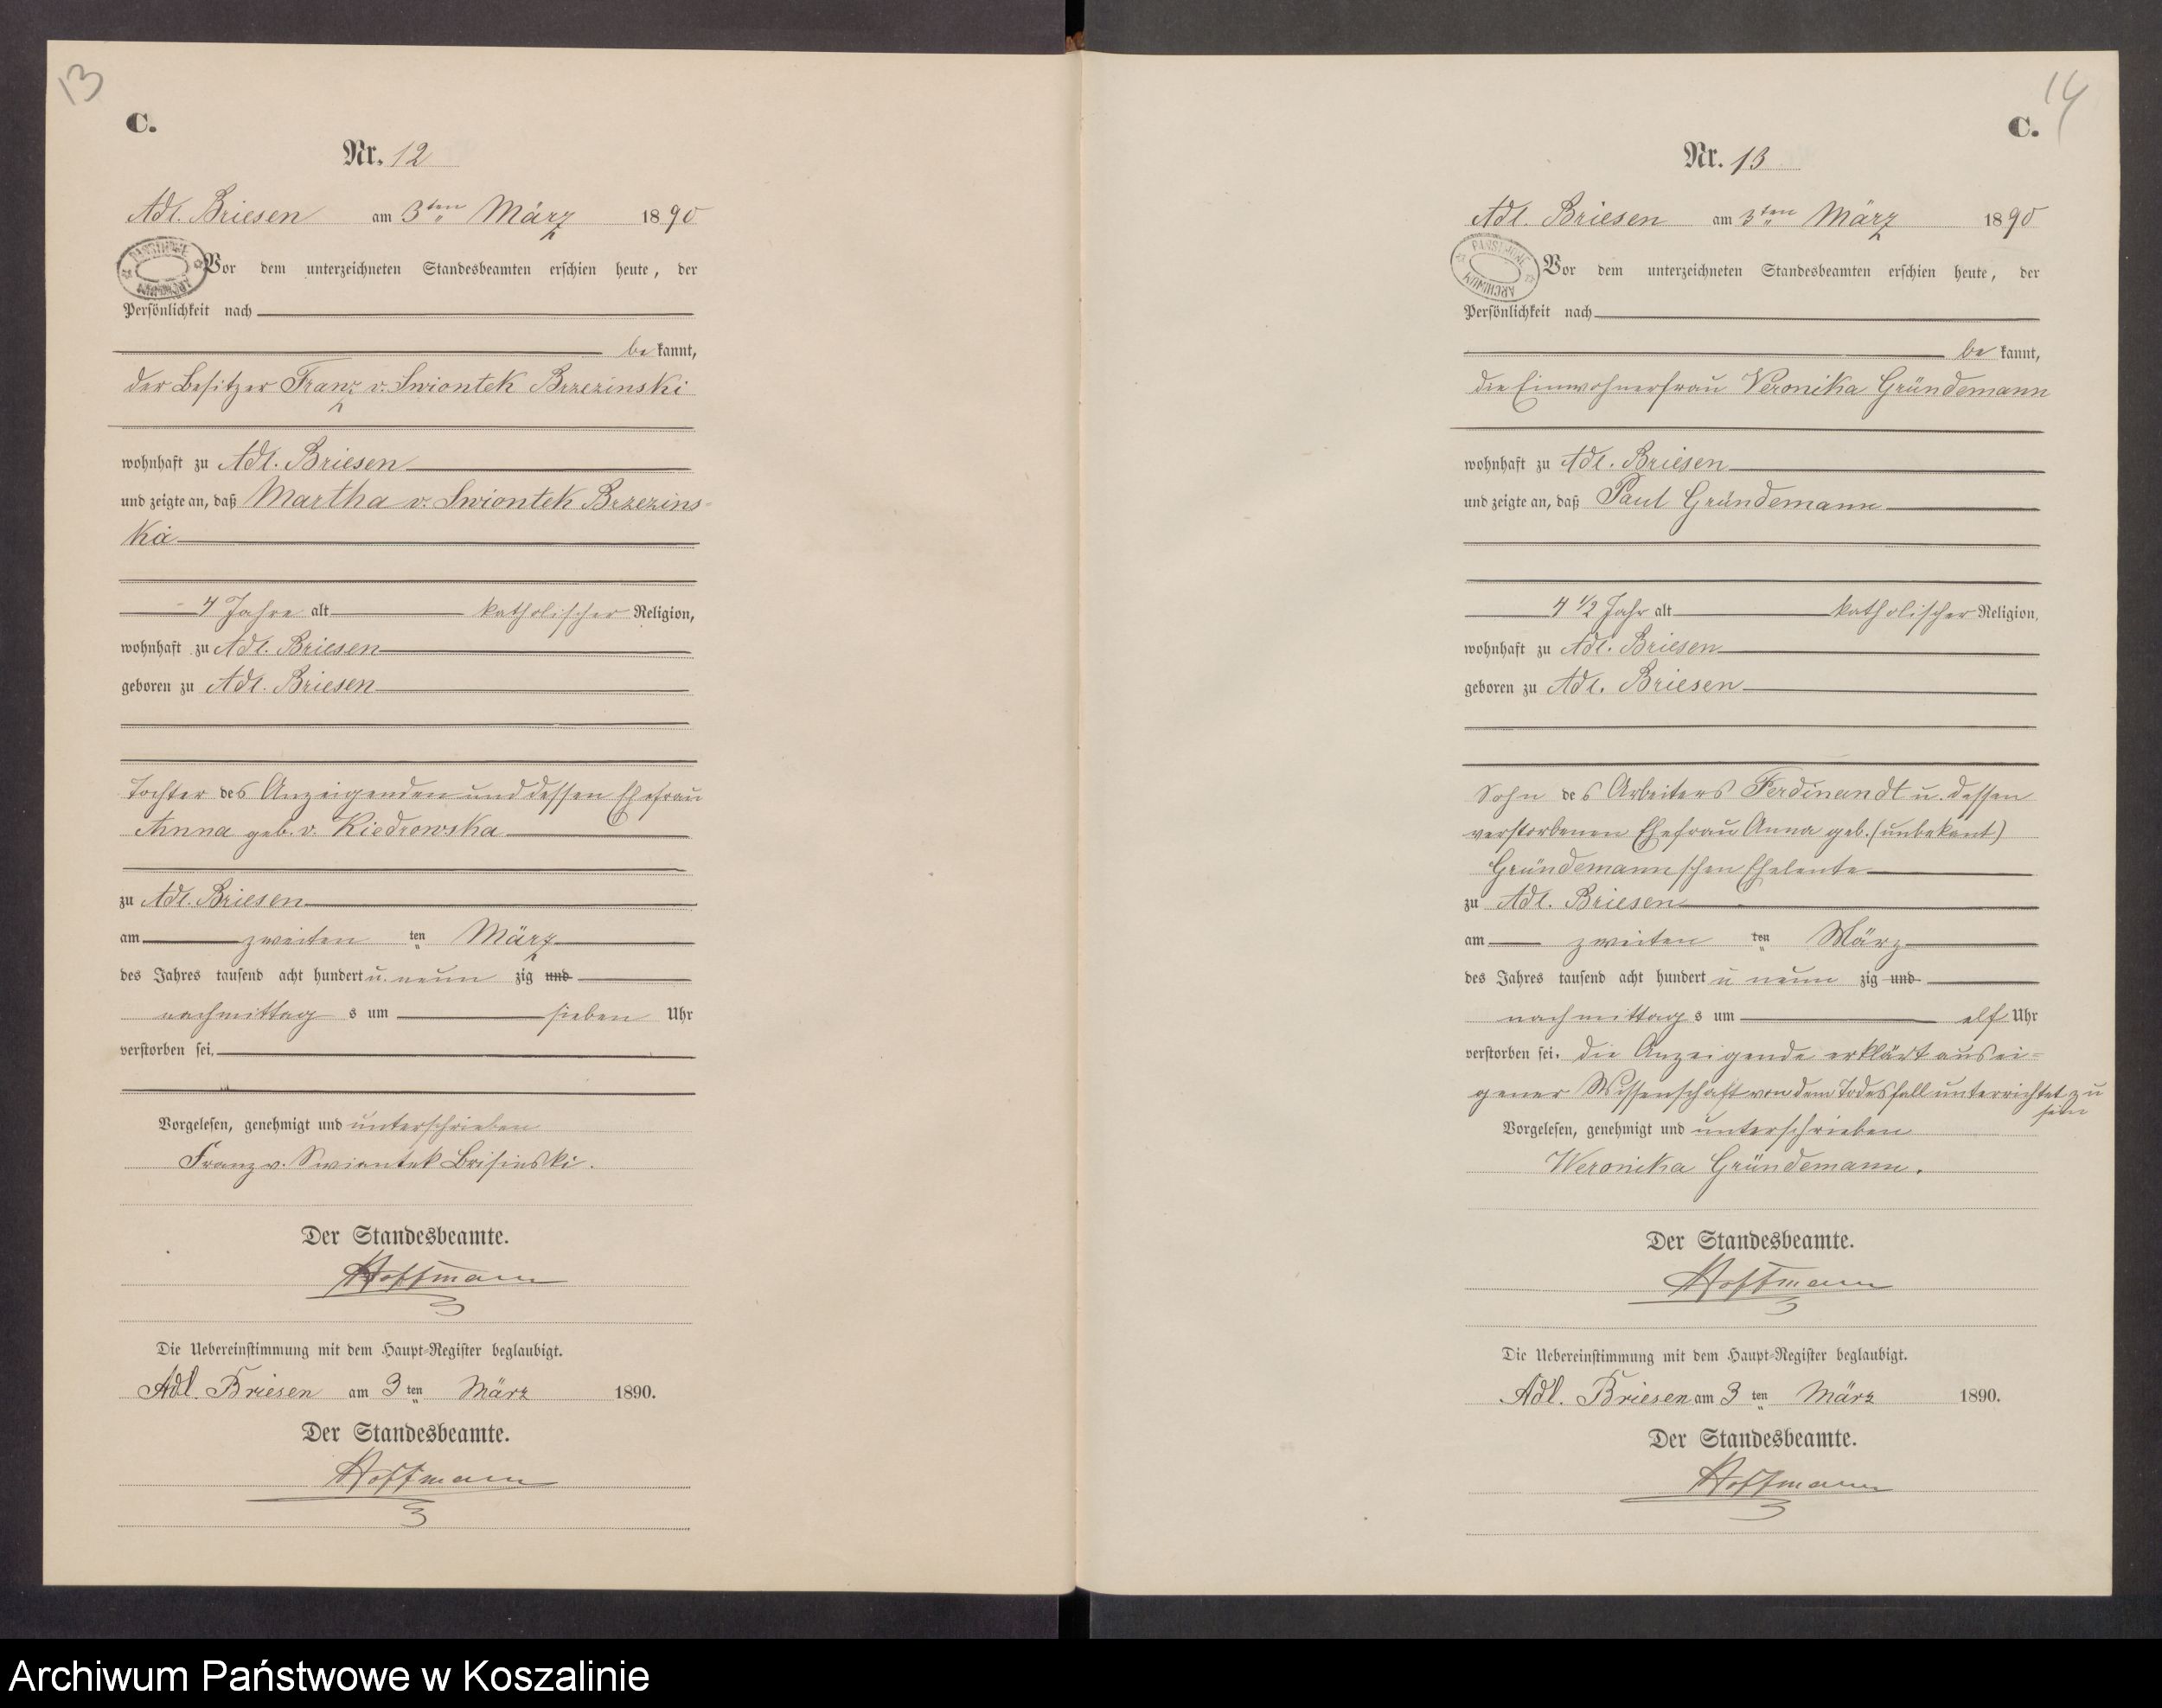 13
C.
Nr. 12
Adl. Briesen am 3ten März 1890
Vor dem unterzeichneten Standesbeamten erschien heute, der
Persönlichkeit nach
be kannt,
der Besitzer Franz v. Swiontek Brzezinski
wohnhaft zu Adl. Briesen
und zeigte an, daß Martha v. Swiontek Brzezins-
ka
4 Jahre alt katholischer Religion,
wohnhaft zu Adl. Briesen
geboren zu Adl. Briesen
Tochter des Anzeigenden und dessen Ehefrau
Anna geb. v. Kiedrowska
zu Adl. Briesen
am zweiten ten März
des Jahres tausend acht hundert u. neun zig und
nachmittag s um sieben Uhr
verstorben sei.
Vorgelesen, genehmigt und unterschrieben
Franz v. Swiontek Brisinski.
Der Standesbeamte.
Hoffmann
Die Uebereinstimmung mit dem Haupt-Register beglaubigt.
Adl. Briesen am 3 ten März 1890.
Der Standesbeamte.
Hoffmann
14
C.
Nr. 13
Adl. Briesen am 3ten März 1890
PAŃSTWOWE ARCHIWUM
Vor dem unterzeichneten Standesbeamten erschien heute, der
Persönlichkeit nach
be kannt,
die Einwohnerfrau Veronika Gründemann
wohnhaft zu Adl. Briesen
und zeigte an, daß Paul Gründemann
4 1/2 Jahr alt katholischer Religion,
wohnhaft zu Adl. Briesen
geboren zu Adl. Briesen
Sohn des Arbeiters Ferdinandt u. dessen
verstorbenen Ehefrau Anna geb. (unbekant)
Gründemannschen Eheleute
zu Adl. Briesen
am zweiten ten März
des Jahres tausend acht hundert u neun zig und
nachmittag s um elf Uhr
verstorben sei. die Anzeigende erklärt aus ei-
gener Wissenschaft von dem Todesfall unterrichtet zu
sein
Vorgelesen, genehmigt und unterschrieben
Weronika Gründemann.
Der Standesbeamte.
Hoffmann
Die Uebereinstimmung mit dem Haupt-Register beglaubigt.
Adl. Briesen am 3 ten März 1890.
Der Standesbeamte.
Hoffmann
Archiwum Państwowe w Koszalinie